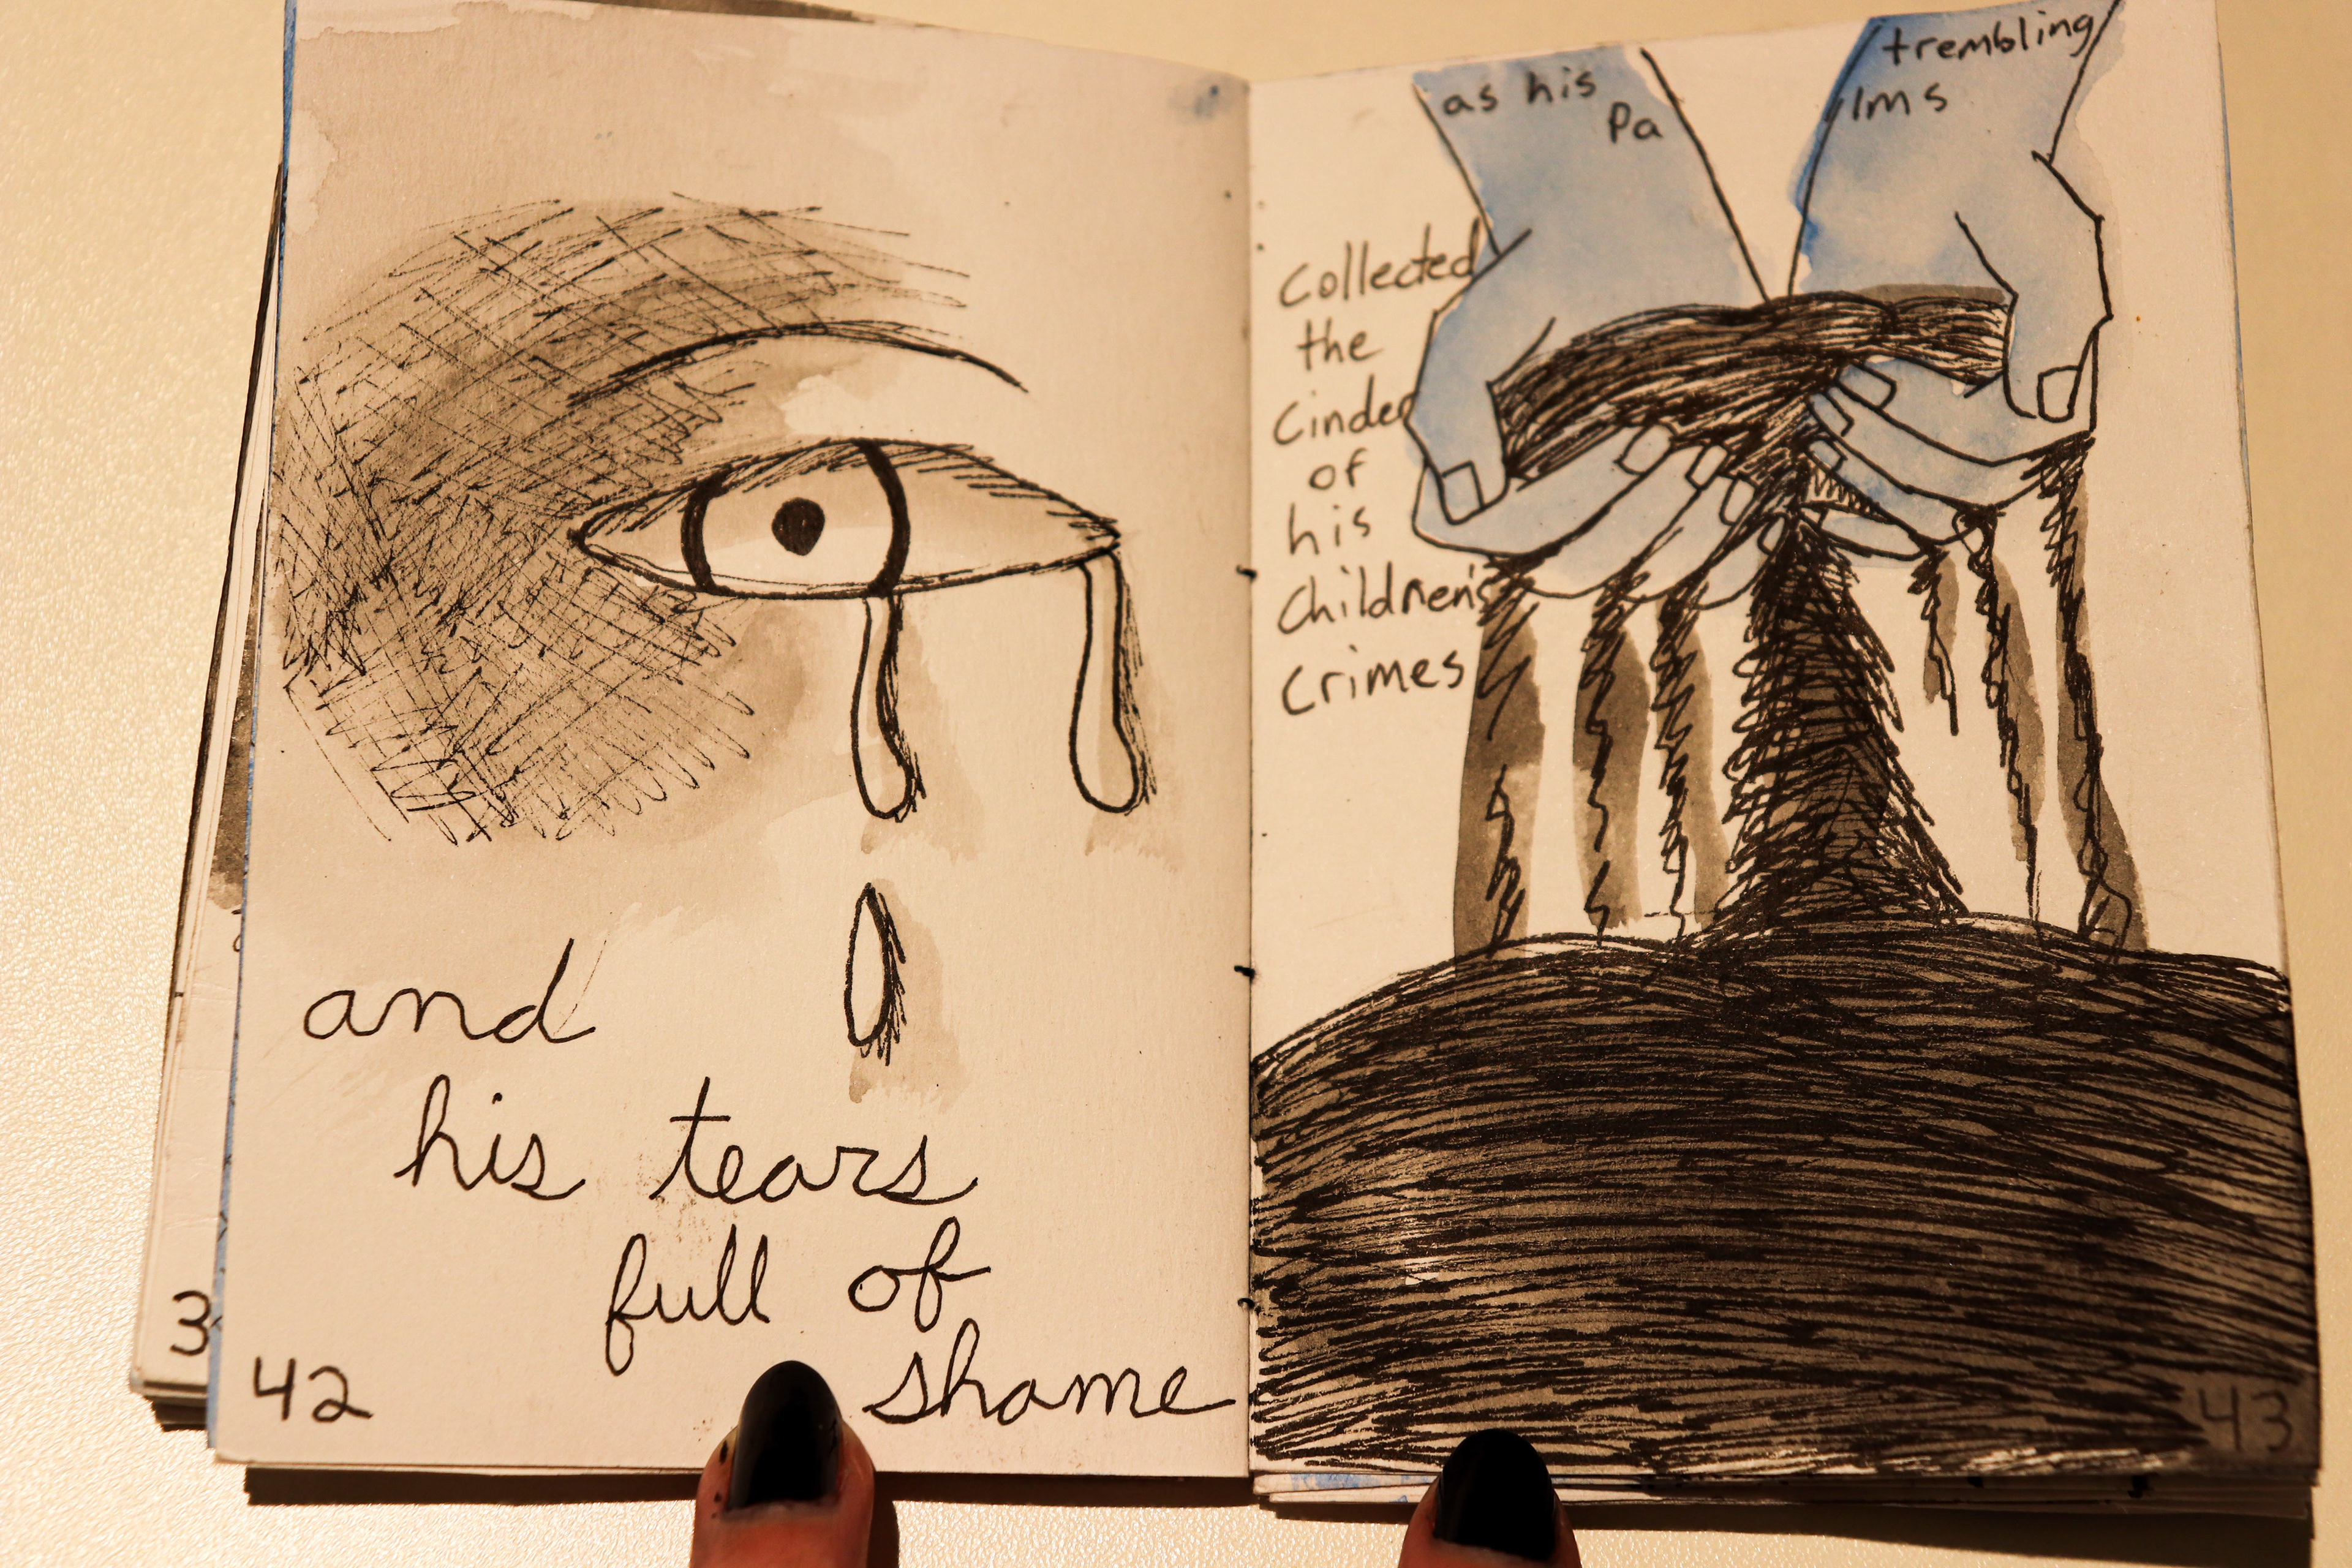 and
his tears
full of
shame
42
3
as his trembling
Pa lms
Collected
the
Cinder
of
his
Children's
Crimes
43